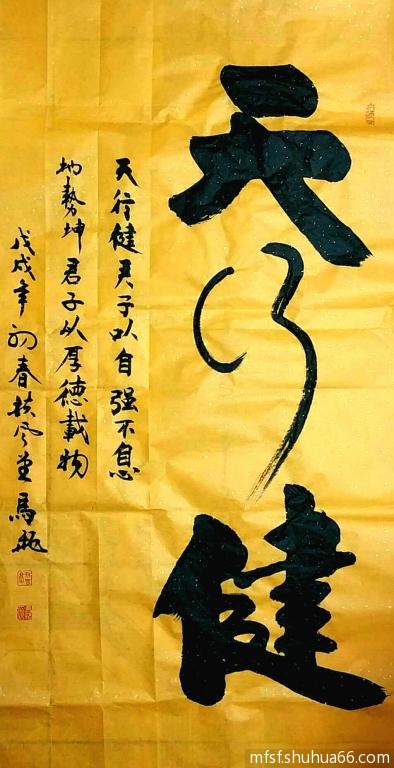 天行健
天行健君子以自强不息
地勢坤君子以厚德載物
戊戌年初春扶风堂馬
mfsf.shuhua66.com